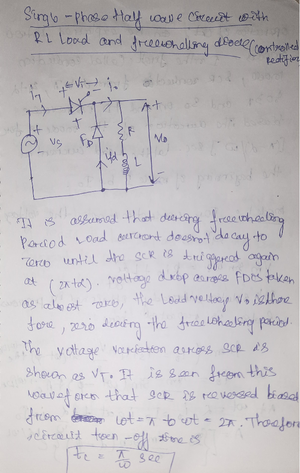 Single-phase Half wave Circuit with
RL Load and freewheeling diode (controlled
rectifier
+ VT -
iT
T
io
+
+
Vs
FD
R
V0
ifd
L
-
-
It is assumed that during freewheeling
Period Load current doesnot decay to
zero until the SCR is triggered again
at (2π+α). Voltage drop across FD is taken
as almost zero, the Load voltage V0 is there
fore, zero during the freewheeling period.
The voltage variation across SCR is
shown as VT. It is seen from this
waveform that SCR is reversed biased
from ωt = π to ωt = 2π. Therefore
circuit turn-off time is
tc = π/ω sec